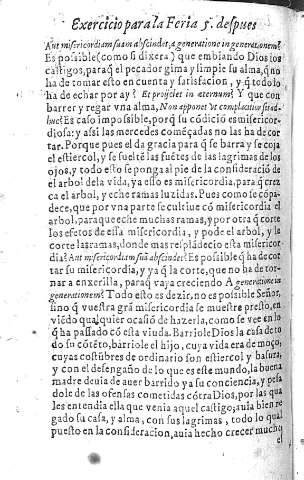 Exercicio para la Feria 5. despues
Aut misericordiam suam abscindet, a generatione in generationem?
Es possible (como si dixera) que embiando Dios los
castigos, paraq̃ el pecador gima y limpie su alma, q̃ no
ha de tomar esto en cuenta y satisfacion, y q̃ todo lo
ha de echar por ay? Et projiciet in aeternum? Y que con
barrer y regar vna alma, Non apponet vt complacitior sit ad-
huc? Es caso impossible, porq̃ su cõdiciõ es misericor-
diosa: y assi las mercedes comẽçadas no las ha de cor
tar. Porque pues el da gracia para q̃ se barra y se coja
el estiercol, y se sueltẽ las fuẽtes de las lagrimas de los
ojos, y todo esto se ponga al pie de la consideraciõ de
el arbol dela vida, ya esso es misericordia, para q̃ crez
ca el arbol, y eche ramas luzidas. Pues como se cõpa-
dece, que por vna parte se cultiue cõ misericordia el
arbol, paraque eche muchas ramas, y por otra q̃ corte
los efetos de essa misericordia, y pode el arbol, y le
corte las ramas, donde mas resplãdecio esta misericor-
dia? Aut misericordiam suã abscindet? Es possible q̃ ha de cor
tar su misericordia, y ya q̃ la corte, que no ha de tor-
nar a enxerilla, paraq̃ vaya creciendo A generatione in
generationem? Todo esto es dezir, no es possible Señor,
sino q̃ vuestra grã misericordia se muestre presto, en
viẽdo qualquier ocasiõ de hazerla, como se vee en lo
q̃ ha passado cõ esta viuda. Barriole Dios la casa de to
do su cõtẽto, barriole el hijo, cuya vida era de moço,
cuyas costũbres de ordinario son estiercol y basura,
y con el desengaño de lo que es este mundo, la buena
madre deuia de auer barrido ya su conciencia, y pesã
dole de las ofensas cometidas cõtra Dios, por las qua
les entendia ella que venia aquel castigo; auia bien re
gado su casa, y alma, con sus lagrimas, todo lo qual
puesto en la consideracion, auia hecho crecer mucho
el